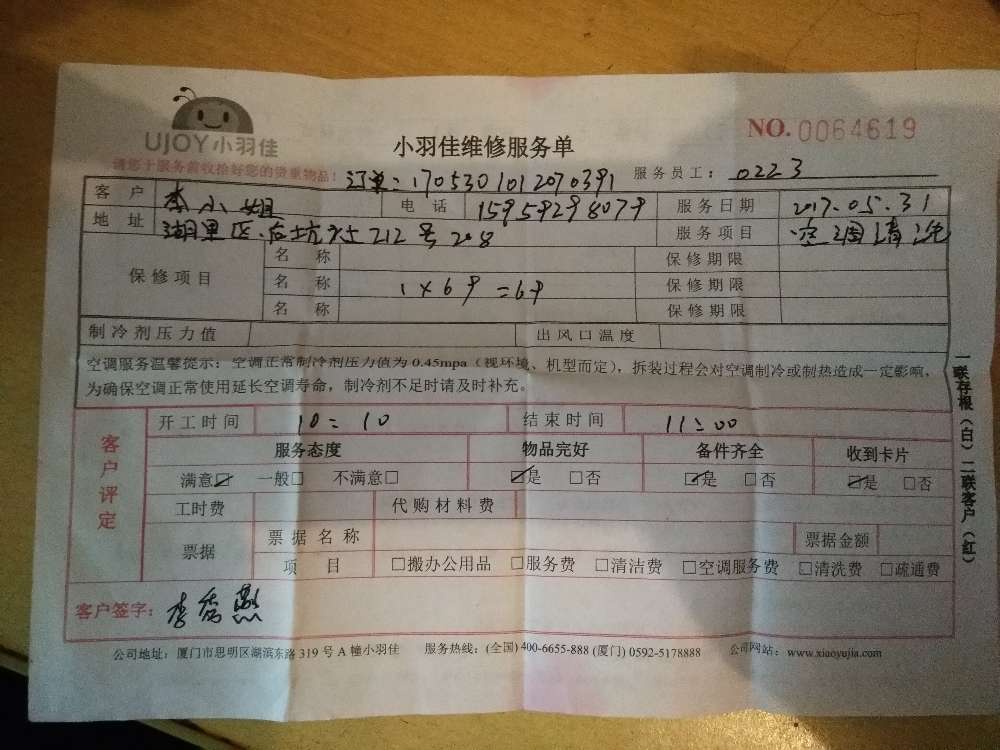 UJOY小羽佳
小羽佳维修服务单
NO. 0064619
请您于服务前收拾好您的贵重物品！
订单：1705301012070391
服务员工： 0223
客户 李小姐 电话 15959298079 服务日期 2017.05.31
地址 湖里区. 后坑社212号208 服务项目 空调清洗
保修项目 名称 保修期限
名称 1×69=69 保修期限
名称 保修期限
制冷剂压力值 出风口温度
空调服务温馨提示：空调正常制冷剂压力值为0.45mpa（视环境、机型而定），拆装过程会对空调制冷或制热造成一定影响，
为确保空调正常使用延长空调寿命，制冷剂不足时请及时补充。
客户评定
开工时间 10：10 结束时间 11：00
服务态度 物品完好 备件齐全 收到卡片
满意☑ 一般□ 不满意□ ☑是 □否 ☑是 □否 ☑是 □否
工时费 代购材料费
票据 票据名称 票据金额
项目 □搬办公用品 □服务费 □清洁费 □空调服务费 □清洗费 □疏通费
客户签字：李秀燕
公司地址：厦门市思明区湖滨东路319号A幢小羽佳 服务热线：(全国) 400-6655-888 (厦门) 0592-5178888 公司网站：www.xiaoyujia.com
一联存根（白）二联客户（红）